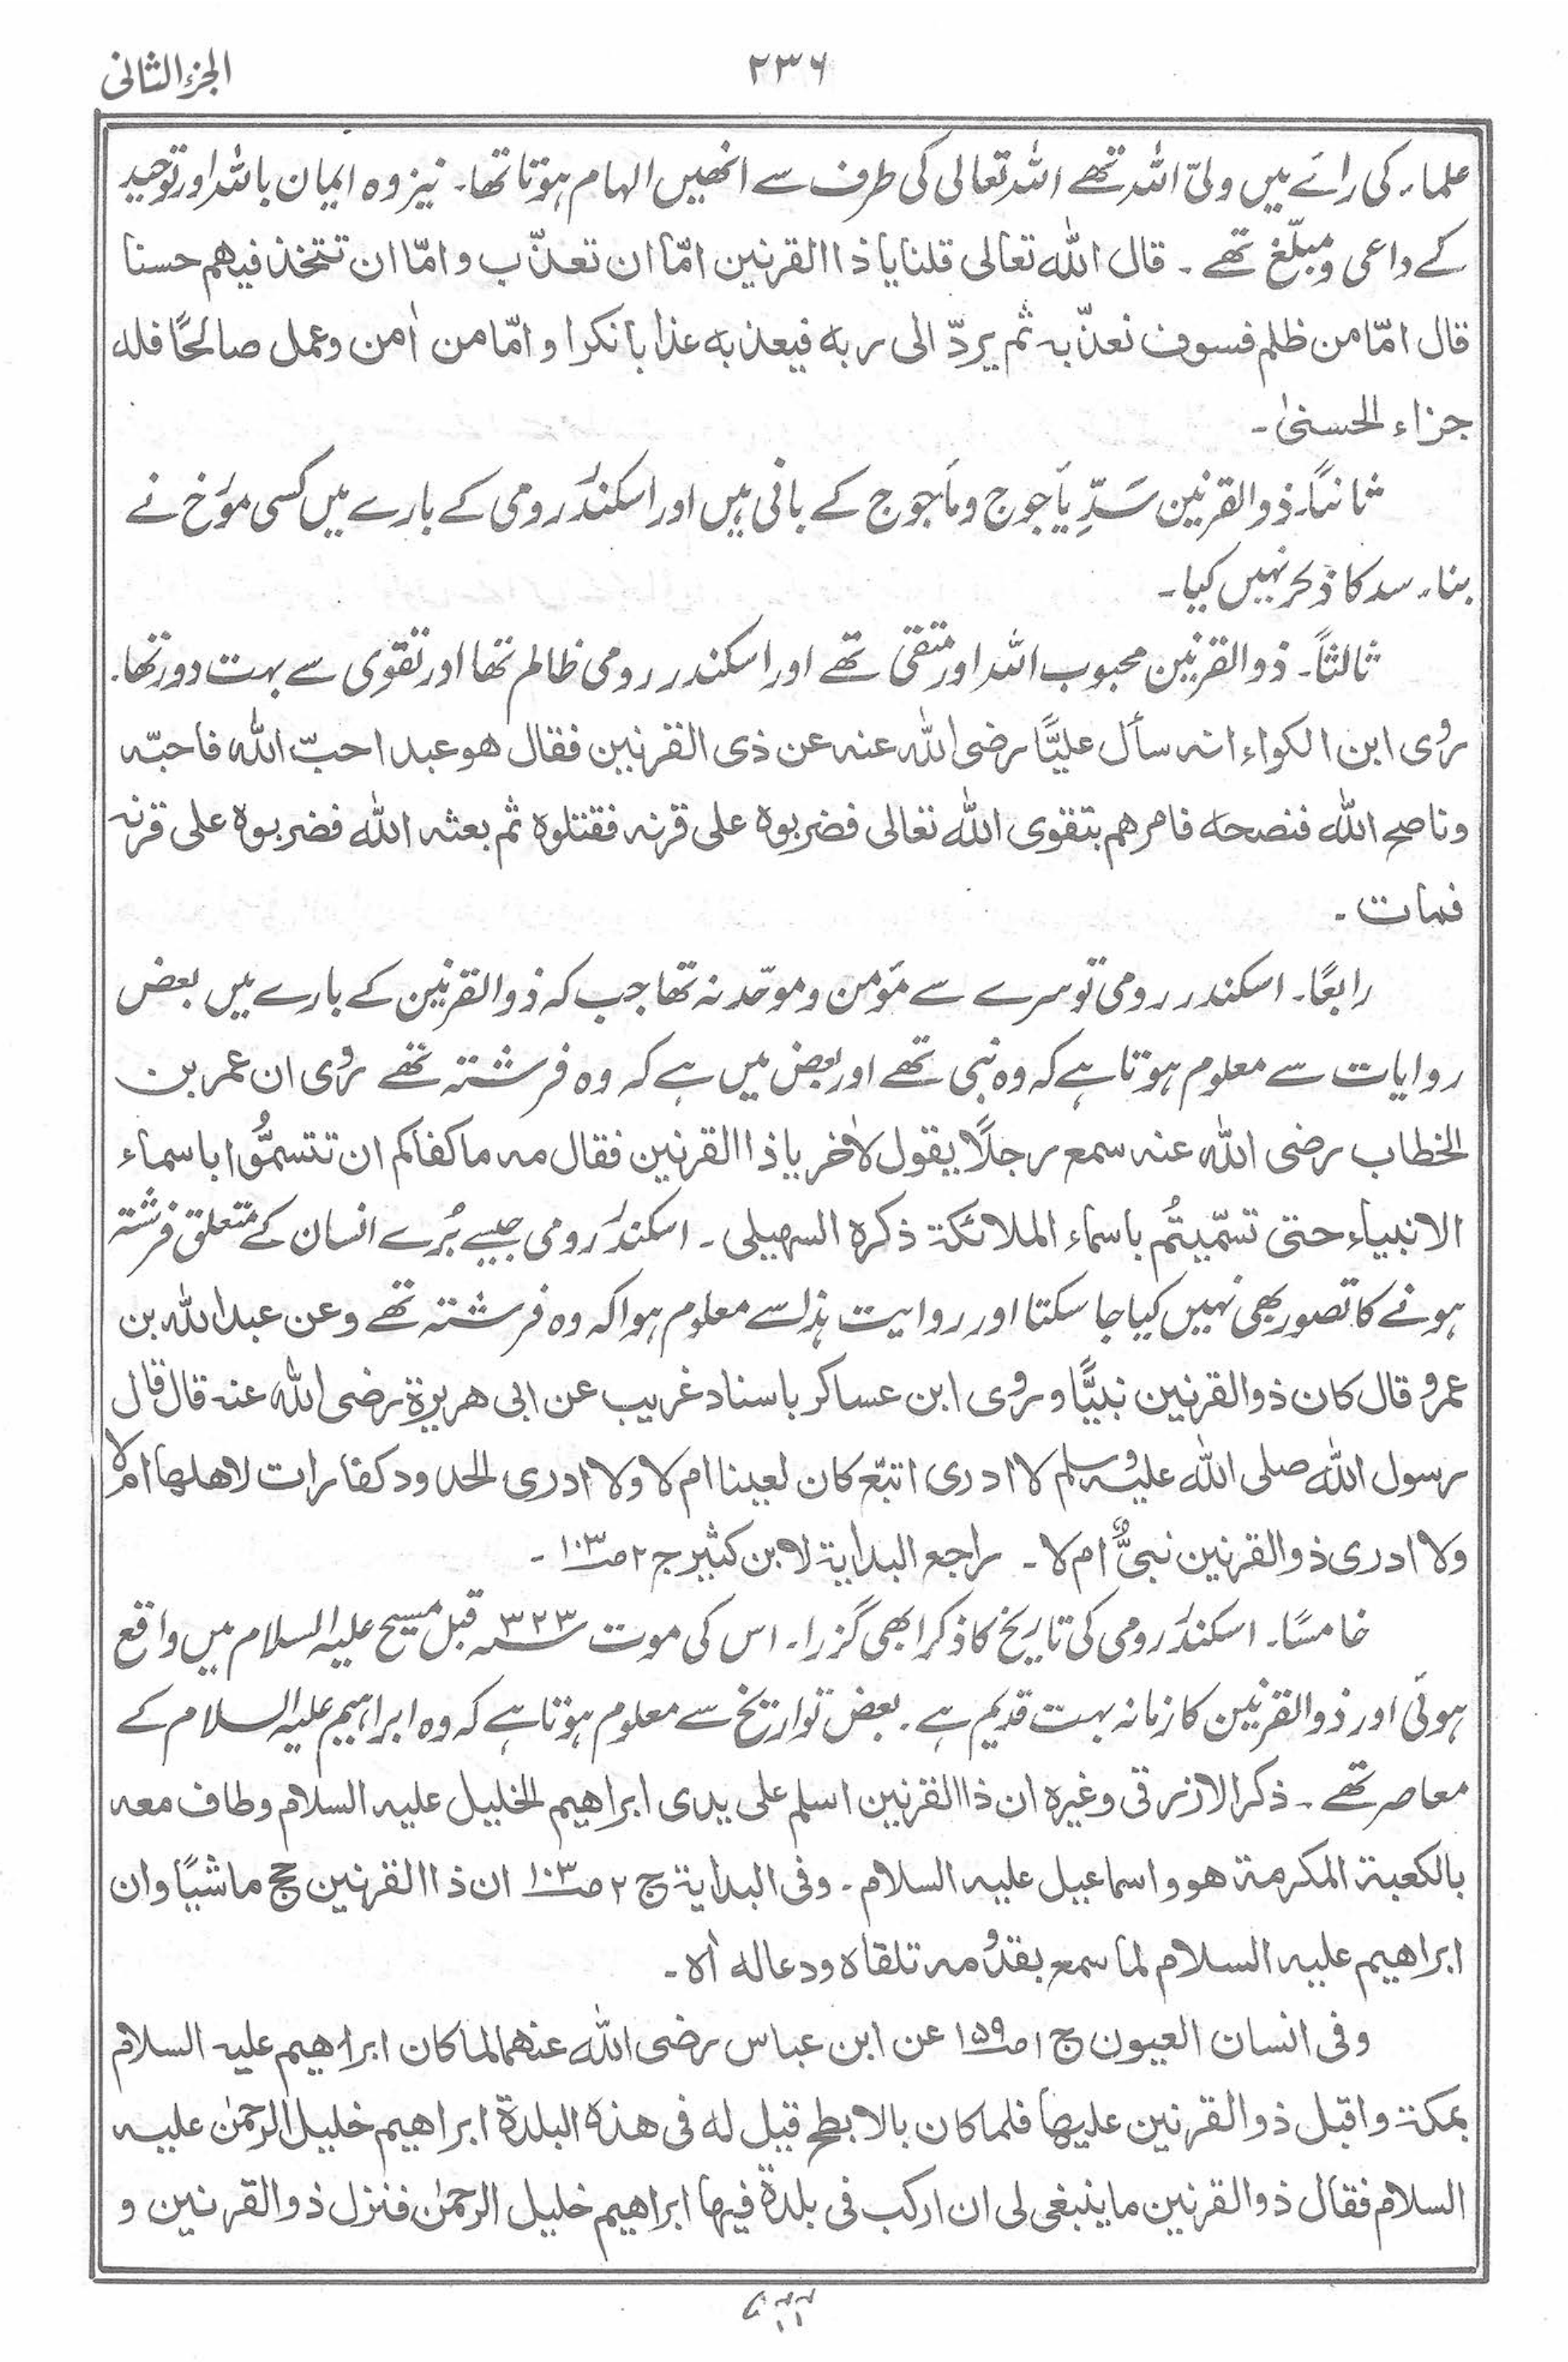 الجزء الثانی
۲۳۶
علماء کی رائے میں ولیّ اللہ تھے اللہ تعالی کی طرف سے انھیں الہام ہوتا تھا۔ نیز وہ ایمان باللہ اور توحید
کے داعی و مبلّغ تھے ۔ قال اللّٰہ تعالی قلنا یا ذا القرنین امّا ان تعذّب و امّا ان تتخذ فیھم حسنا
قال امّا من ظلم فسوف نعذّبہ ثم یردّ الی ربہ فیعذبہ عذابا نکرا و امّا من اٰمن و عمل صالحًا فلہ
جزاء الحسنیٰ ۔
ثانیًا۔ ذو القرنین سَدِّ یأجوج و مأجوج کے بانی ہیں اور اسکندر رومی کے بارے میں کسی مؤرخ نے
بناء سد کا ذکر نہیں کیا ۔
ثالثاً ۔ ذو القرنین محبوب اللہ اور متقی تھے اور اسکندر رومی ظالم تھا اور تقوی سے بہت دور تھا۔
روی ابن الکواء انہ سأل علیًّا رضی اللّٰہ عنہ عن ذی القرنین فقال ھو عبد احبّ اللّٰہ فاحبّہ
وناصح اللّٰہ فنصحہ فامرھم بتقوی اللّٰہ تعالی فضربوہ علی قرنہ فقتلوہ ثم بعثہ اللّٰہ فضربوہ علی قرنہ
فمات ۔
رابعًا ۔ اسکندر رومی تو سرے سے مؤمن و موحّد نہ تھا جب کہ ذو القرنین کے بارے میں بعض
روایات سے معلوم ہوتا ہے کہ وہ نبی تھے اور بعض میں ہے کہ وہ فرشتہ تھے روی ان عمر بن
الخطاب رضی اللّٰہ عنہ سمع رجلًا یقول لاٰخر یا ذا القرنین فقال مہ ما کفاکم ان تتسمَّوا باسماء
الانبیاء حتی تسمّیتُم باسماء الملائکۃ ذکرہ السہیلی ۔ اسکندر رومی جیسے بُرے انسان کے متعلق فرشتہ
ہونے کا تصور بھی نہیں کیا جا سکتا اور روایت ہذا سے معلوم ہوا کہ وہ فرشتہ تھے وعن عبد اللّٰہ بن
عمرو قال کان ذو القرنین نبیًّا و روی ابن عساکر باسناد غریب عن ابی ھریرۃ رضی اللّٰہ عنہ قال قال
رسول اللّٰہ صلی اللّٰہ علیہ وسلم لا ادری اتبّع کان لعینا ام لا ولا ادری الحدود کفارات لاھلھا ام لا
ولا ادری ذو القرنین نبیٌّ ام لا ۔ راجع البدایۃ لابن کثیر ج ۲ صـ۱۰۳ ۔
خامسًا ۔ اسکندر رومی کی تاریخ کا ذکر ابھی گزرا ۔ اس کی موت ۳۲۳ سنہ قبل مسیح علیہ السلام میں واقع
ہوئی اور ذو القرنین کا زمانہ بہت قدیم ہے ۔ بعض تواریخ سے معلوم ہوتا ہے کہ وہ ابراہیم علیہ السلام کے
معاصر تھے ۔ ذکر الازرقی وغیرہ ان ذا القرنین اسلم علی یدی ابراھیم الخلیل علیہ السلام وطاف معہ
بالکعبۃ المکرمۃ ھو و اسماعیل علیہ السلام ۔ وفی البدایۃ ج ۲ صـ۱۰۳ ان ذا القرنین حج ماشیًا وان
ابراھیم علیہ السلام لما سمع بقدومہ تلقاہ ودعا لہ اٰہ ۔
وفی انسان العیون ج ۱ صـ۱۵۹ عن ابن عباس رضی اللّٰہ عنھما لما کان ابراھیم علیہ السلام
بمکۃ واقبل ذو القرنین علیھا فلما کان بالابطح قیل لہ فی ھذہ البلدۃ ابراھیم خلیل الرحمٰن علیہ
السلام فقال ذو القرنین ما ینبغی لی ان ارکب فی بلدۃ فیھا ابراھیم خلیل الرحمٰن فنزل ذو القرنین و